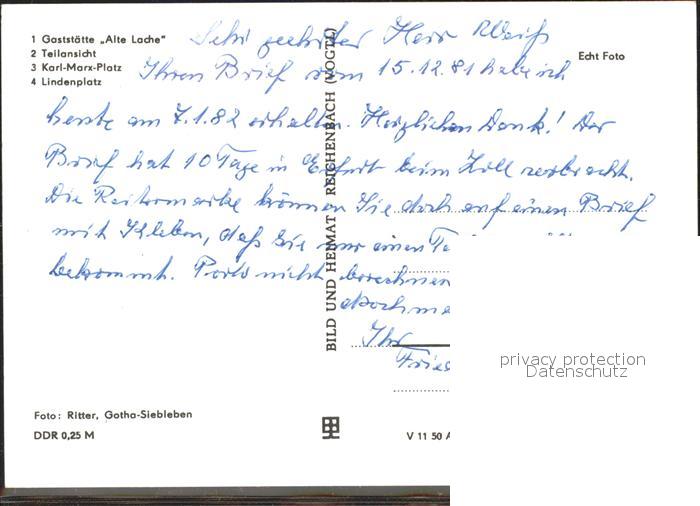 1 Gaststätte „Alte Lache"
2 Teilansicht
3 Karl-Marx-Platz
4 Lindenplatz
Echt Foto
Sehr geehrter Herr Weiß
Ihren Brief vom 15.12.81 habe ich
heute am 7.1.82 erhalten. Herzlichen Dank! Der
Brief hat 10 Tage in Erfurt beim Zoll verbracht.
Die Reitermarke können Sie doch auf einen Brief
mit kleben, daß Sie nur einen
bekommt. Porto nicht berechnen
Nochma
Ihr
Fried
BILD UND HEIMAT REICHENBACH (VOGTL)
Foto: Ritter, Gotha-Siebleben
DDR 0,25 M
V 11 50 A
privacy protection
Datenschutz